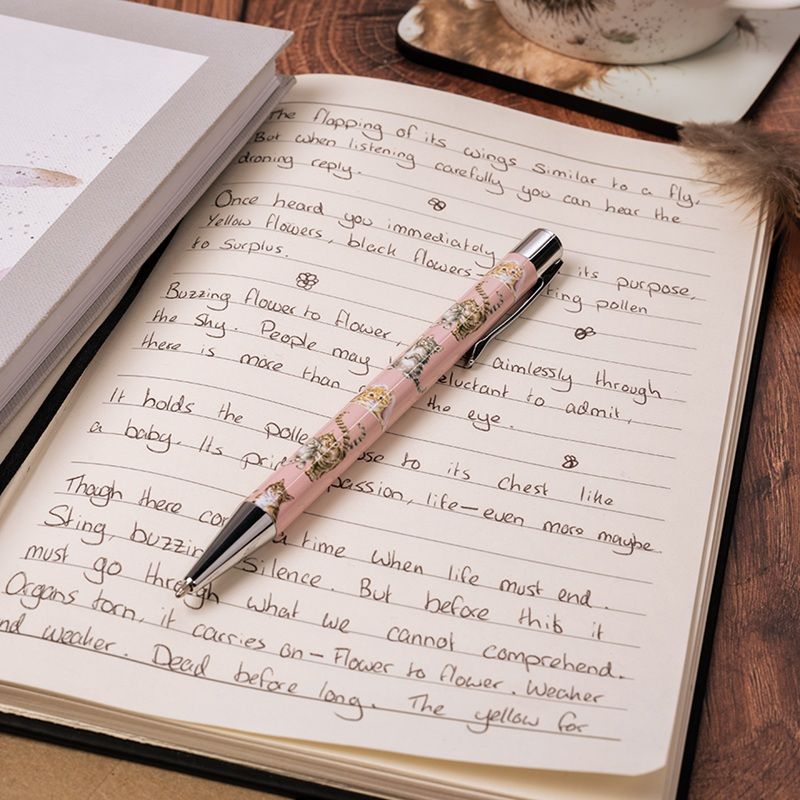 The flapping of its wings similar to a fly,
But when listening carefully you can hear the
droning reply.
Once heard you immediately its purpose,
Yellow flowers, black flowers- ting pollen
to surplus.
Buzzing flower to flower, aimlessly through
the sky. People may reluctant to admit,
there is more than the eye.
It holds the polle close to its chest like
a baby. Its pri passion, life-even more maybe.
Though there co a time when life must end.
Sting, buzzin silence. But before this it
must go through what we cannot comprehend.
Organs torn, it carries on-Flower to flower. Weaker
nd weaker. Dead before long. The yellow for